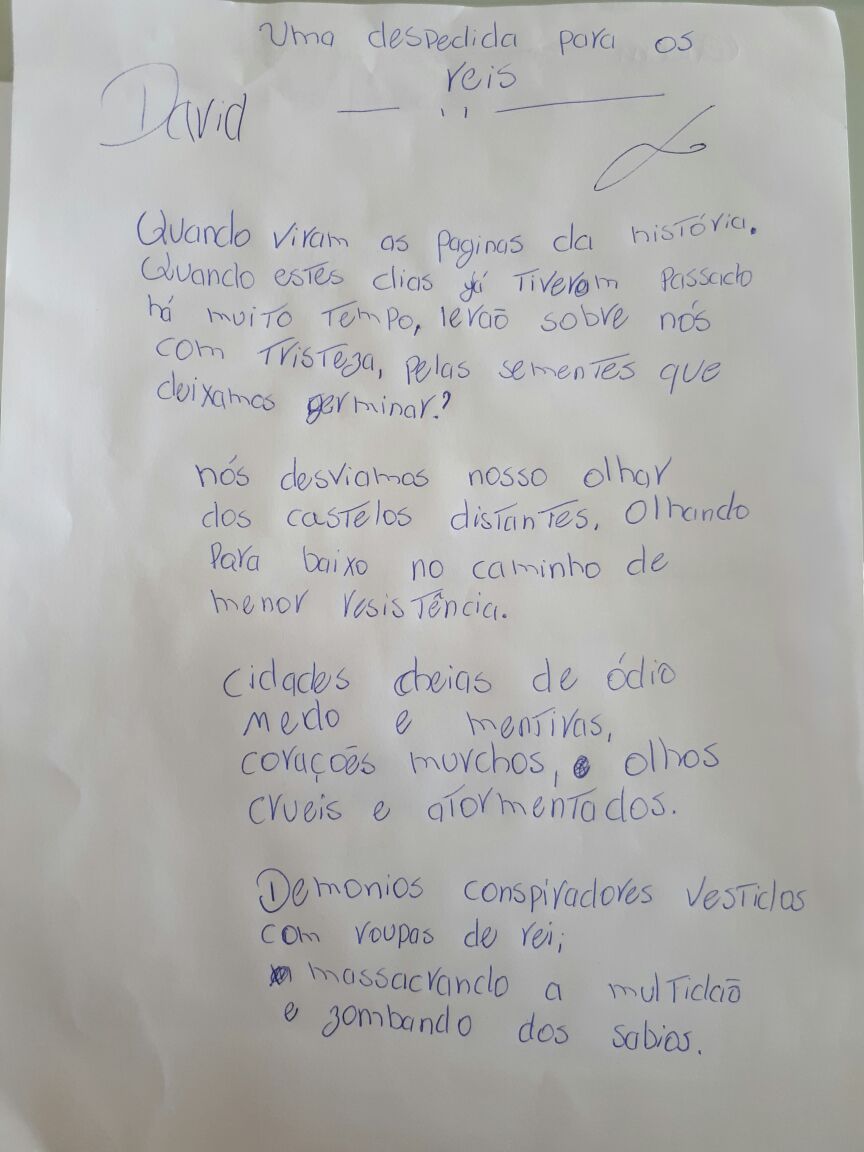 Uma despedida para os
reis
David
Quando viram as paginas da história.
Quando estes dias já tiverem passado
há muito tempo, levão sobre nós
com tristeza, pelas sementes que
deixamos germinar?
nós desviamos nosso olhar
dos castelos distantes, olhando
para baixo no caminho de
menor resistência.
Cidades cheias de ódio
medo e mentiras,
coraçoẽs murchos, olhos
crueis e atormentados.
Demonios conspiradores vestidos
com roupas de rei;
massacrando a multidão
e zombando dos sabios.